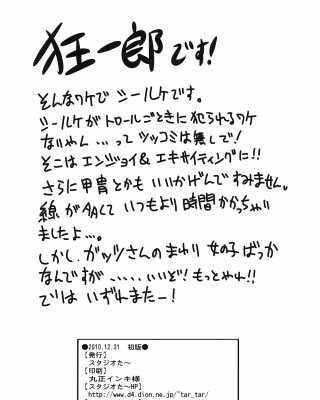 狂一郎です!
そんなワケで シールケです。
シールケがトロールごときに犯られるワケ
ないやん...ってツッコミは無しで!
そこは エンジョイ& エキサイティングに!!
さらに甲冑とかも いいかげんで すみません。
線が多くて いつもより 時間かかっちゃい
ましたよ...。
しかし、ガッツさんのまわり 女の子ばっか
なんですが.....いいぞ! もっとやれ!!
では いずれまたー!
●2010.12.31 初版●
【発行】
スタジオた〜
【印刷】
丸正インキ様
【スタジオた〜HP】
http://www.d4.dion.ne.jp/~tar_tar/